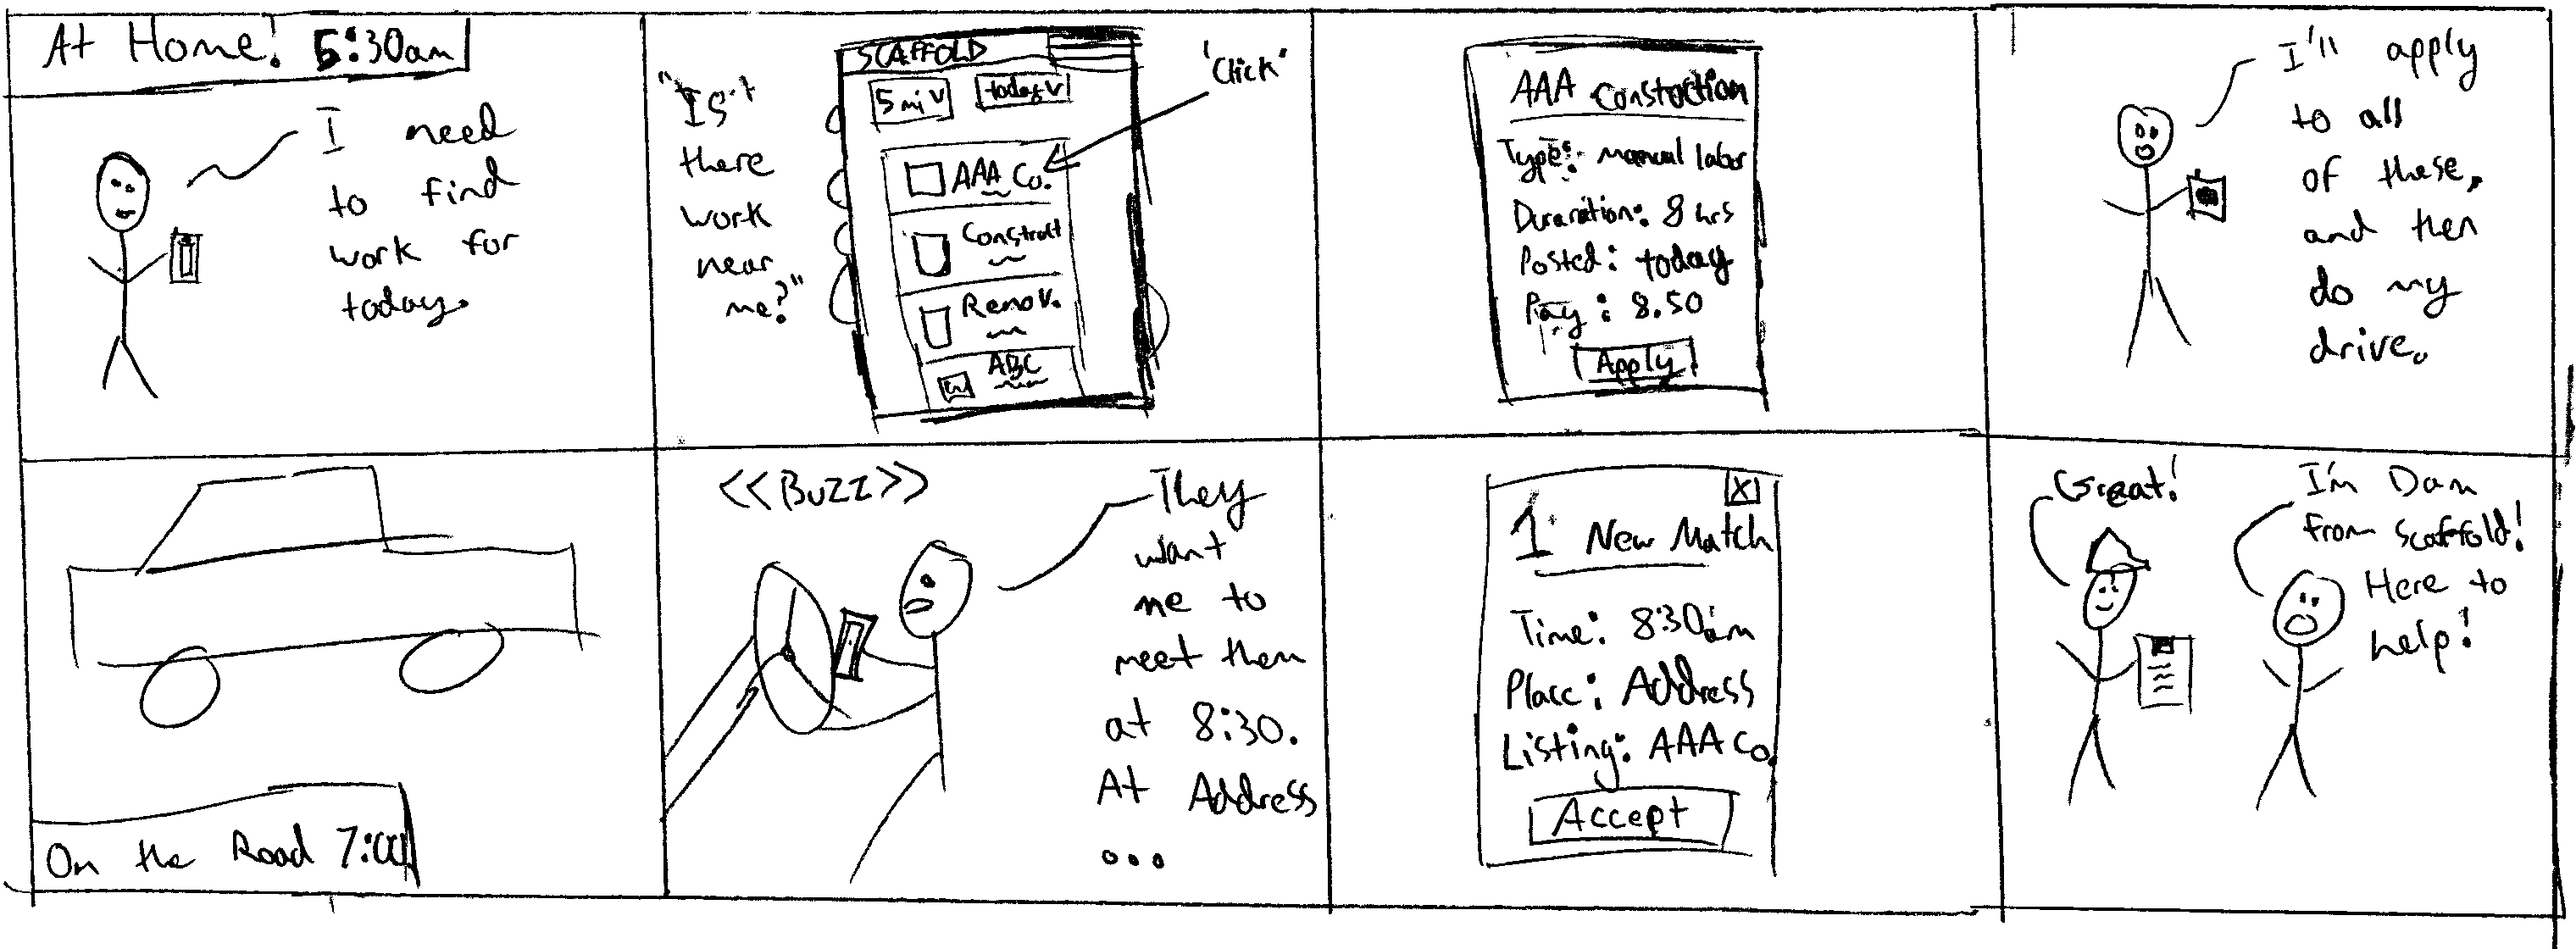 At Home! 5:30am
I need
to find
work for
today.
"Is
there
work
near
me?"
SCAFFOLD
5 mi v
today v
AAA Co.
Constratt
Renov.
ABC
'Click'
AAA Constoction
Type: manual labor
Durarition: 8 hrs
Posted: today
Pay: 8.50
Apply
I'll apply
to all
of these,
and then
do my
drive.
On the Road 7:00
<<BUZZ>>
They
want
me to
meet them
at 8:30.
At Address
...
X
1 New Match
Time: 8:30am
Place: Address
Listing: AAA Co.
Accept
Great!
I'm Dan
from Scaffold!
Here to
help!